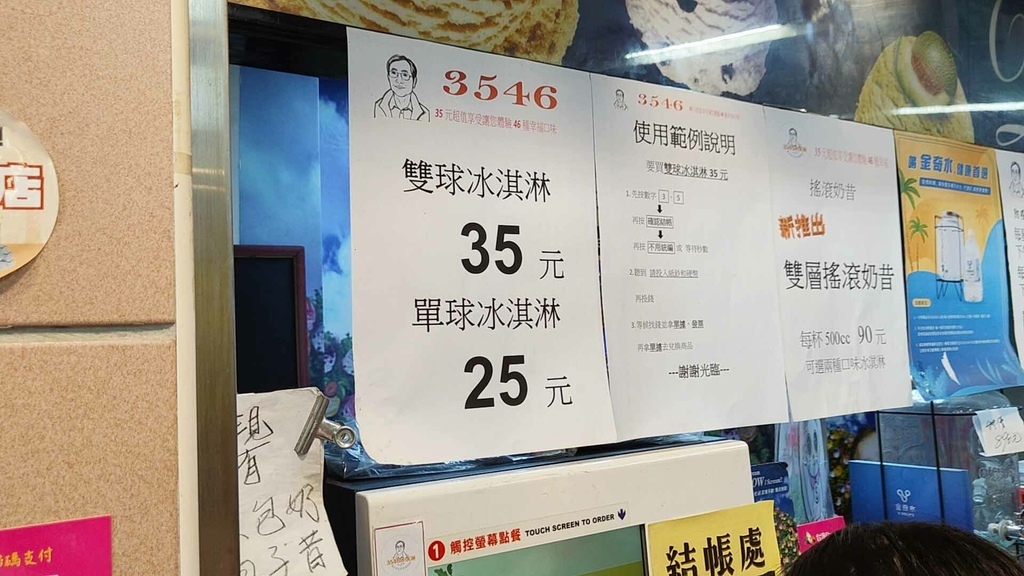 店
3546
35 元超值享受讓您體驗 46 種幸福口味
雙球冰淇淋
35 元
單球冰淇淋
25 元
3546
使用範例說明
要買雙球冰淇淋 35 元
1. 先按數字 3 、 5
再按 確認結帳
再按 不用統編 或 等待秒數
2. 聽到 請投入紙鈔和硬幣
再投錢
3. 等候找錢並拿單據、發票
再拿單據去兌換商品
---謝謝光臨---
搖滾奶昔
新推出
雙層搖滾奶昔
每杯 500cc 90 元
可選兩種口味冰淇淋
現
有
包 奶
子 昔
碼支付
1 觸控螢幕點餐 TOUCH SCREEN TO ORDER
結帳處